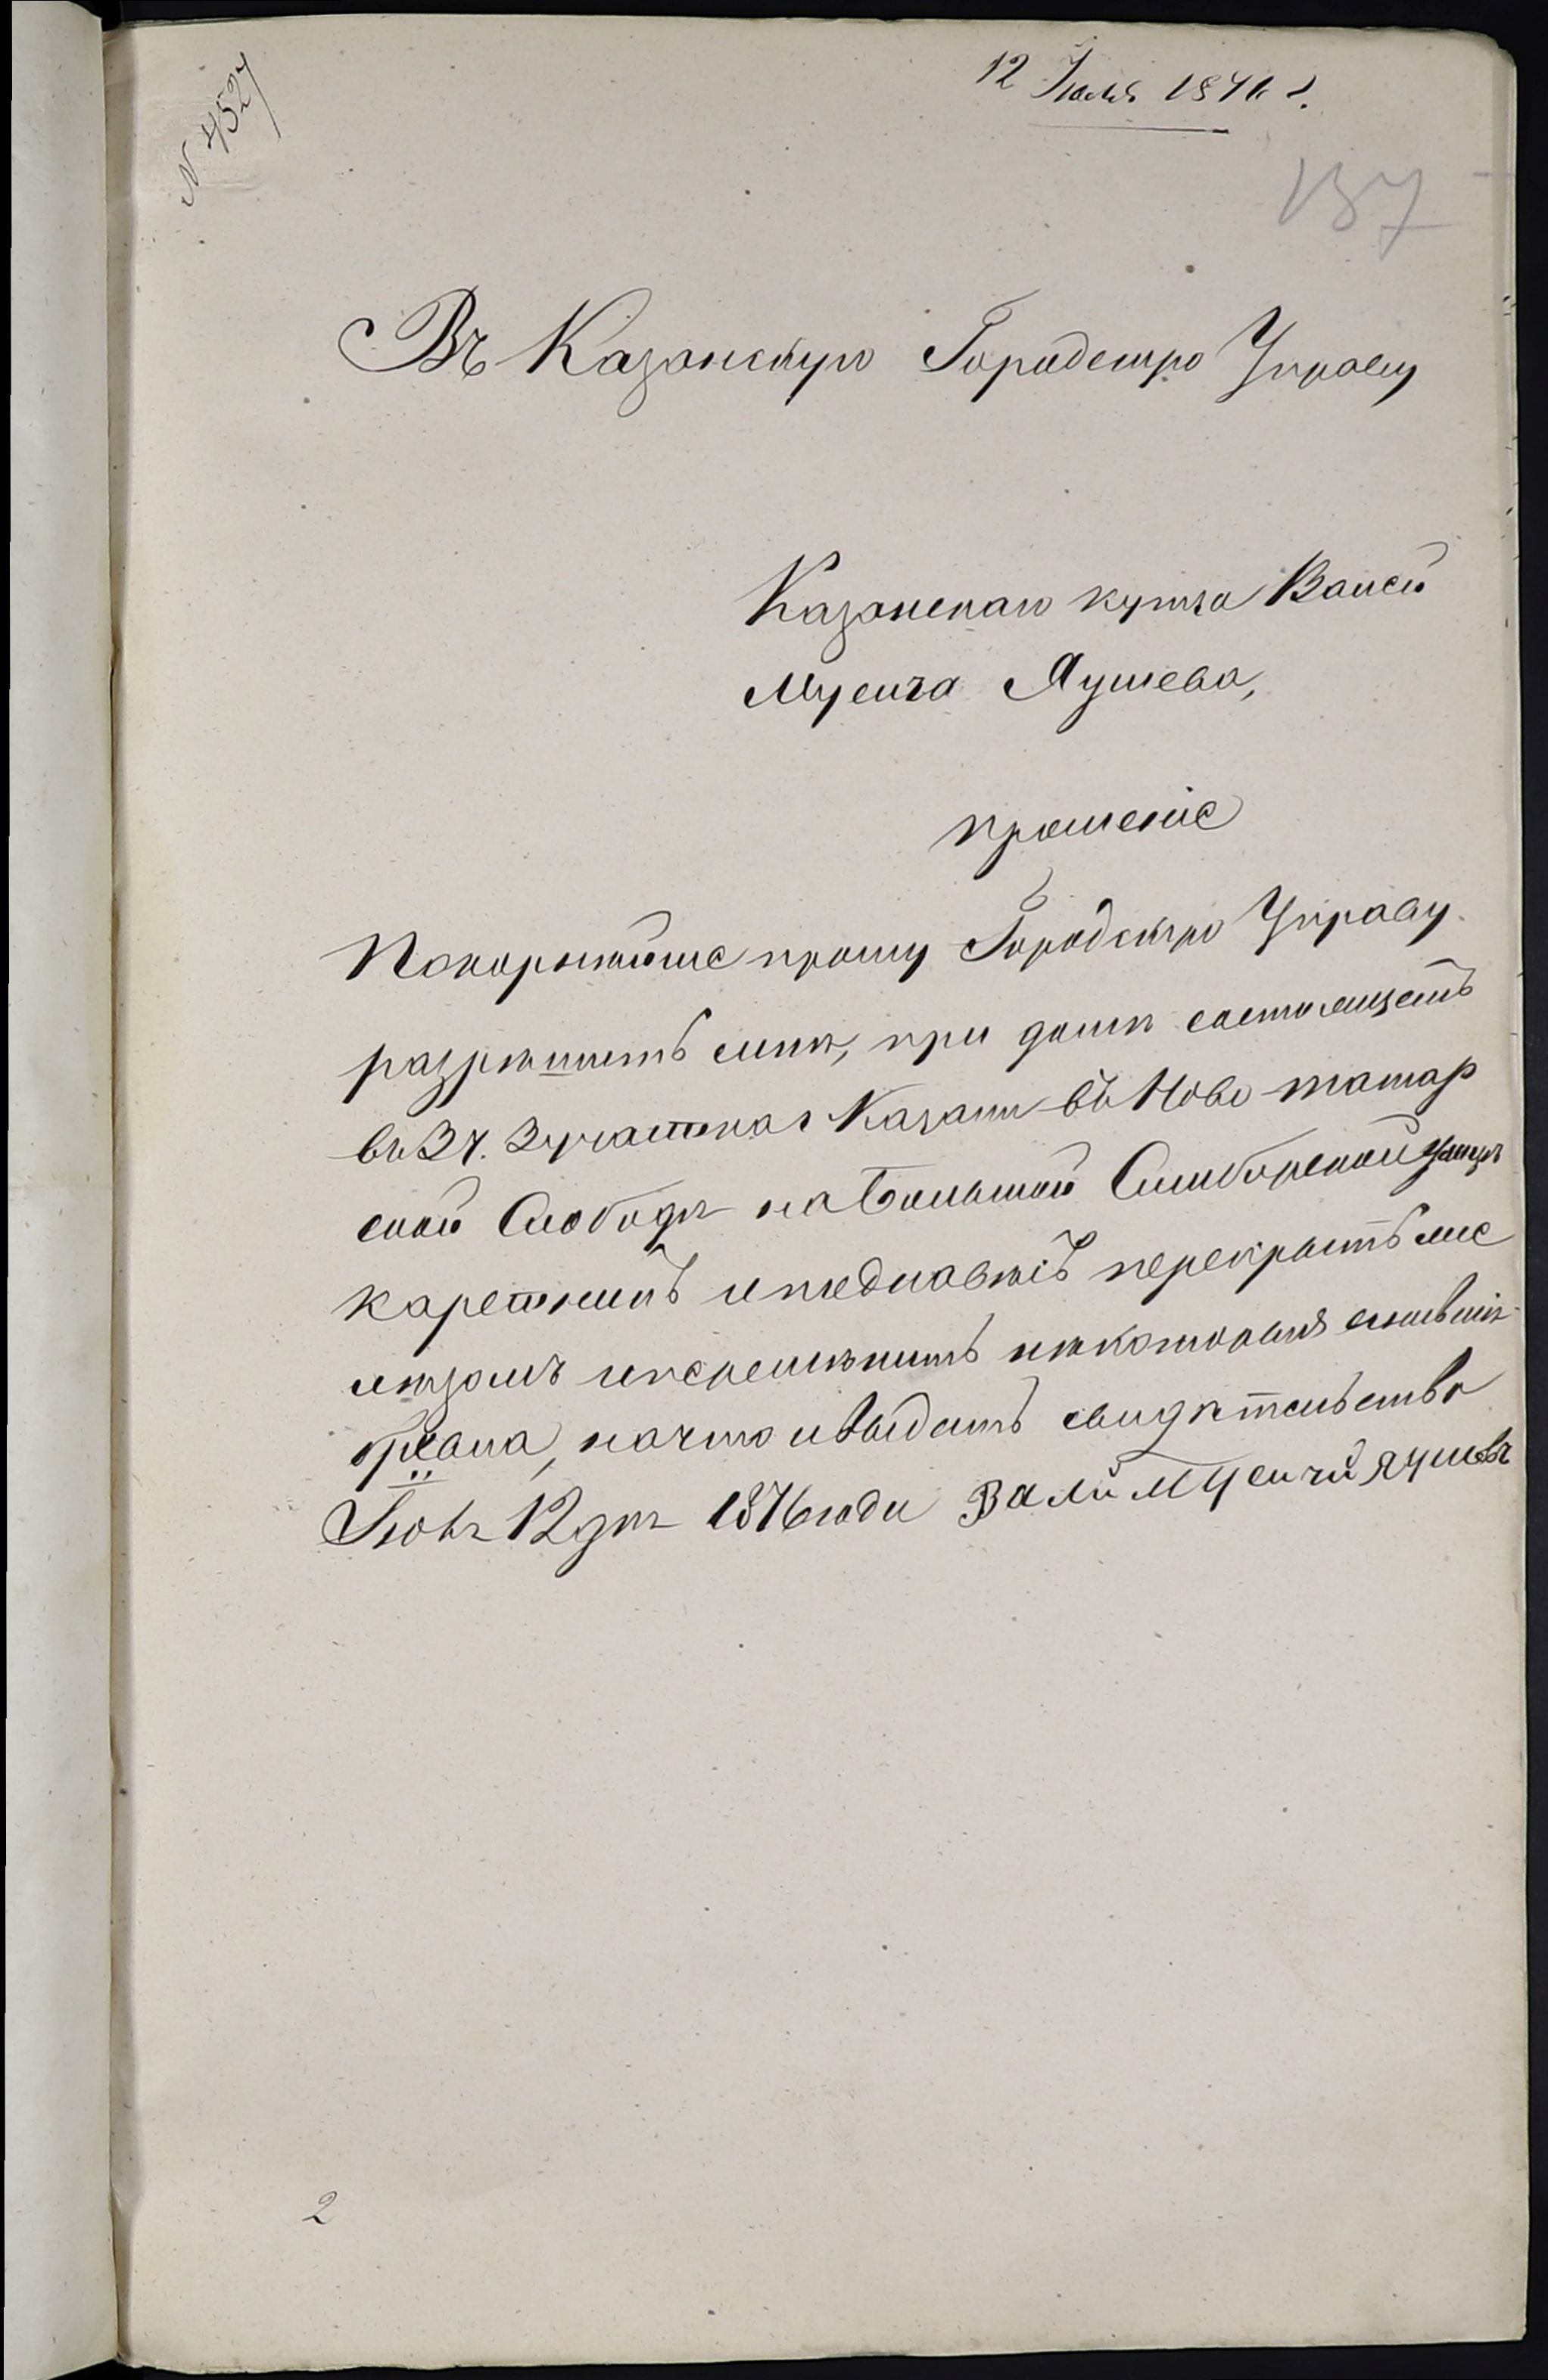 N 4527
12 Іюля 1876 г.
137
Въ Казанскую Городскую Управу
Казанскаго купца Валея
Мусича Яушева,
прошеніе
Покорнѣйше прошу Городскую Управу
разрѣшить мнѣ, при домѣ состоящемъ
въ 3 ч. 3 участка г Казани въ Ново-татар
ской Слободѣ на Большой Симбирской улицѣ
каретникъ и перекрыть же
лѣзомъ и перемѣнить нѣкоторыя сгнившія
бревна, на что и выдать свидѣтельство
Іюля 12 дня 1876 года Вали Мусичй Яушевъ
2